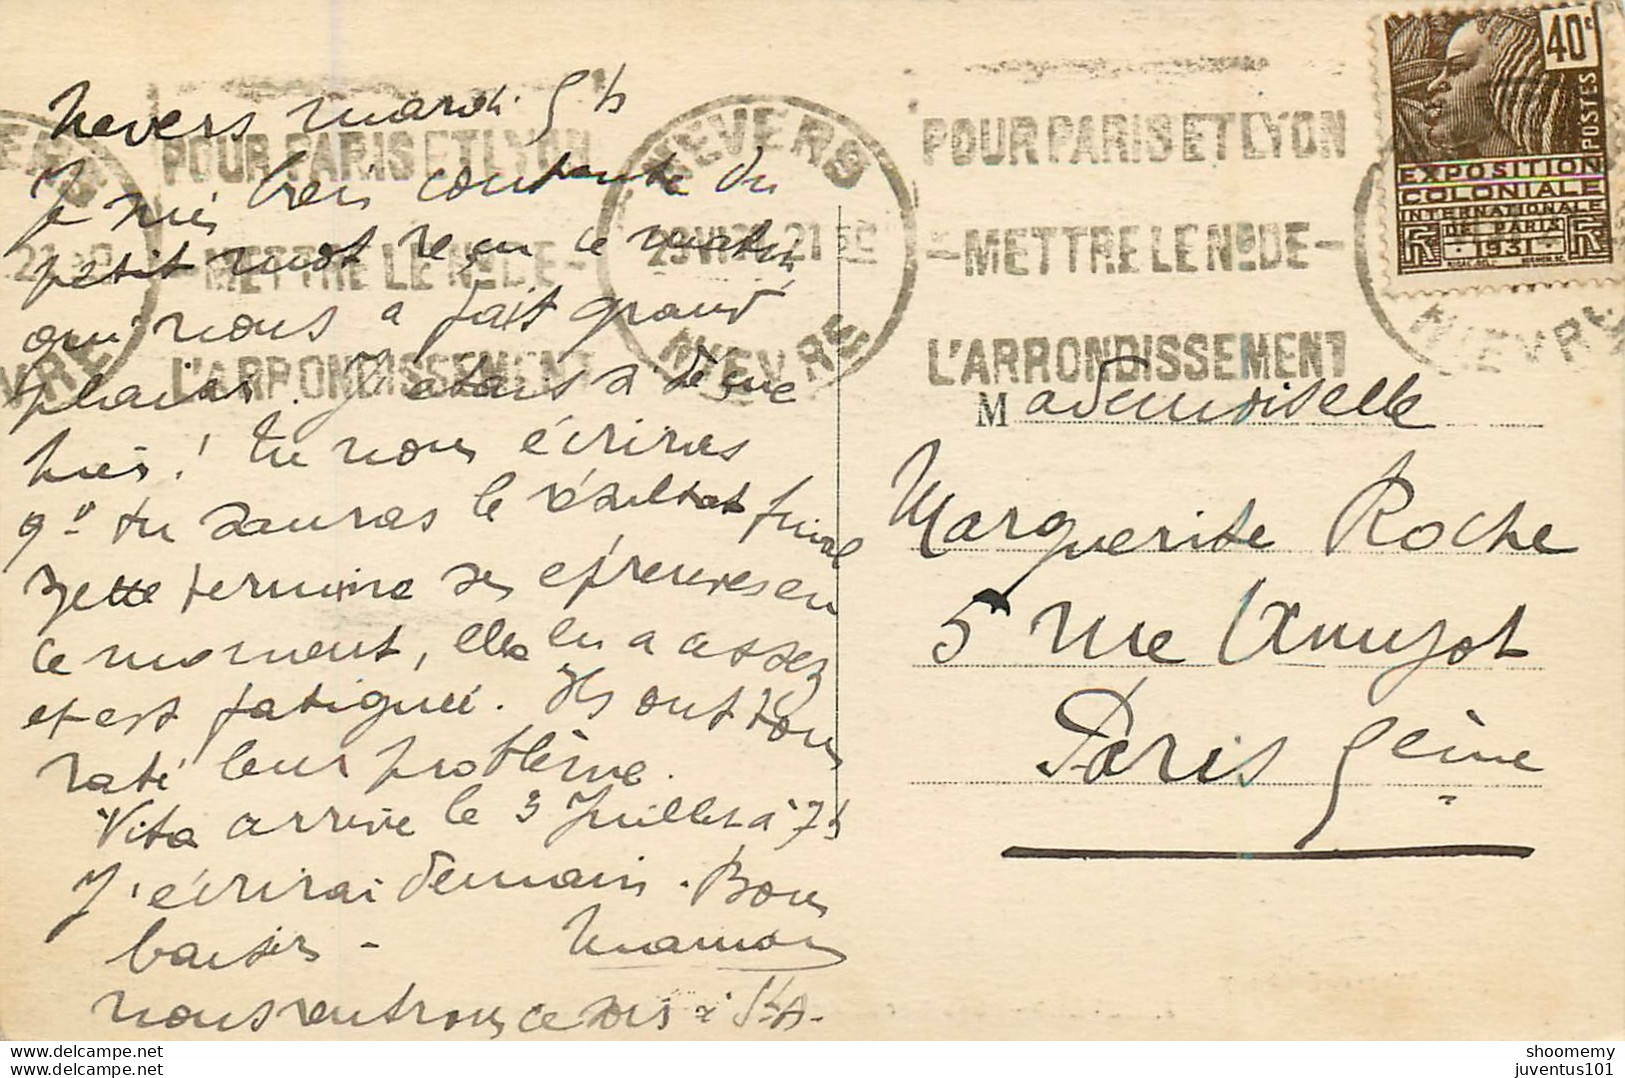 Nevers mardi 5h
Je suis bien contente du
petit mot reçu ce matin
qui nous a fait grand
plaisir. J'étais à
hier! tu nous écriras
qd tu sauras le résultat final
Zette termine ses épreuves en
ce moment, elle en a assez
et est fatiguée. Ils ont tous
raté leur problème.
Vita arrive le 3 Juillet à 7h
J'écrirai demain. Bons
baisers - Maman
nous rentrons ce soir à St A-
POUR PARIS ET LYON
- METTRE LE No DE -
L'ARRONDISSEMENT
NEVERS
29 VI 21 30
NIEVRE
POUR PARIS ET LYON
- METTRE LE No DE -
L'ARRONDISSEMENT
NIEVRE
40c
POSTES
EXPOSITION
COLONIALE
INTERNATIONALE
DE PARIS
1931
Mademoiselle
Marguerite Roche
5 rue Amyot
Paris 5ème
shoomemy
juventus101